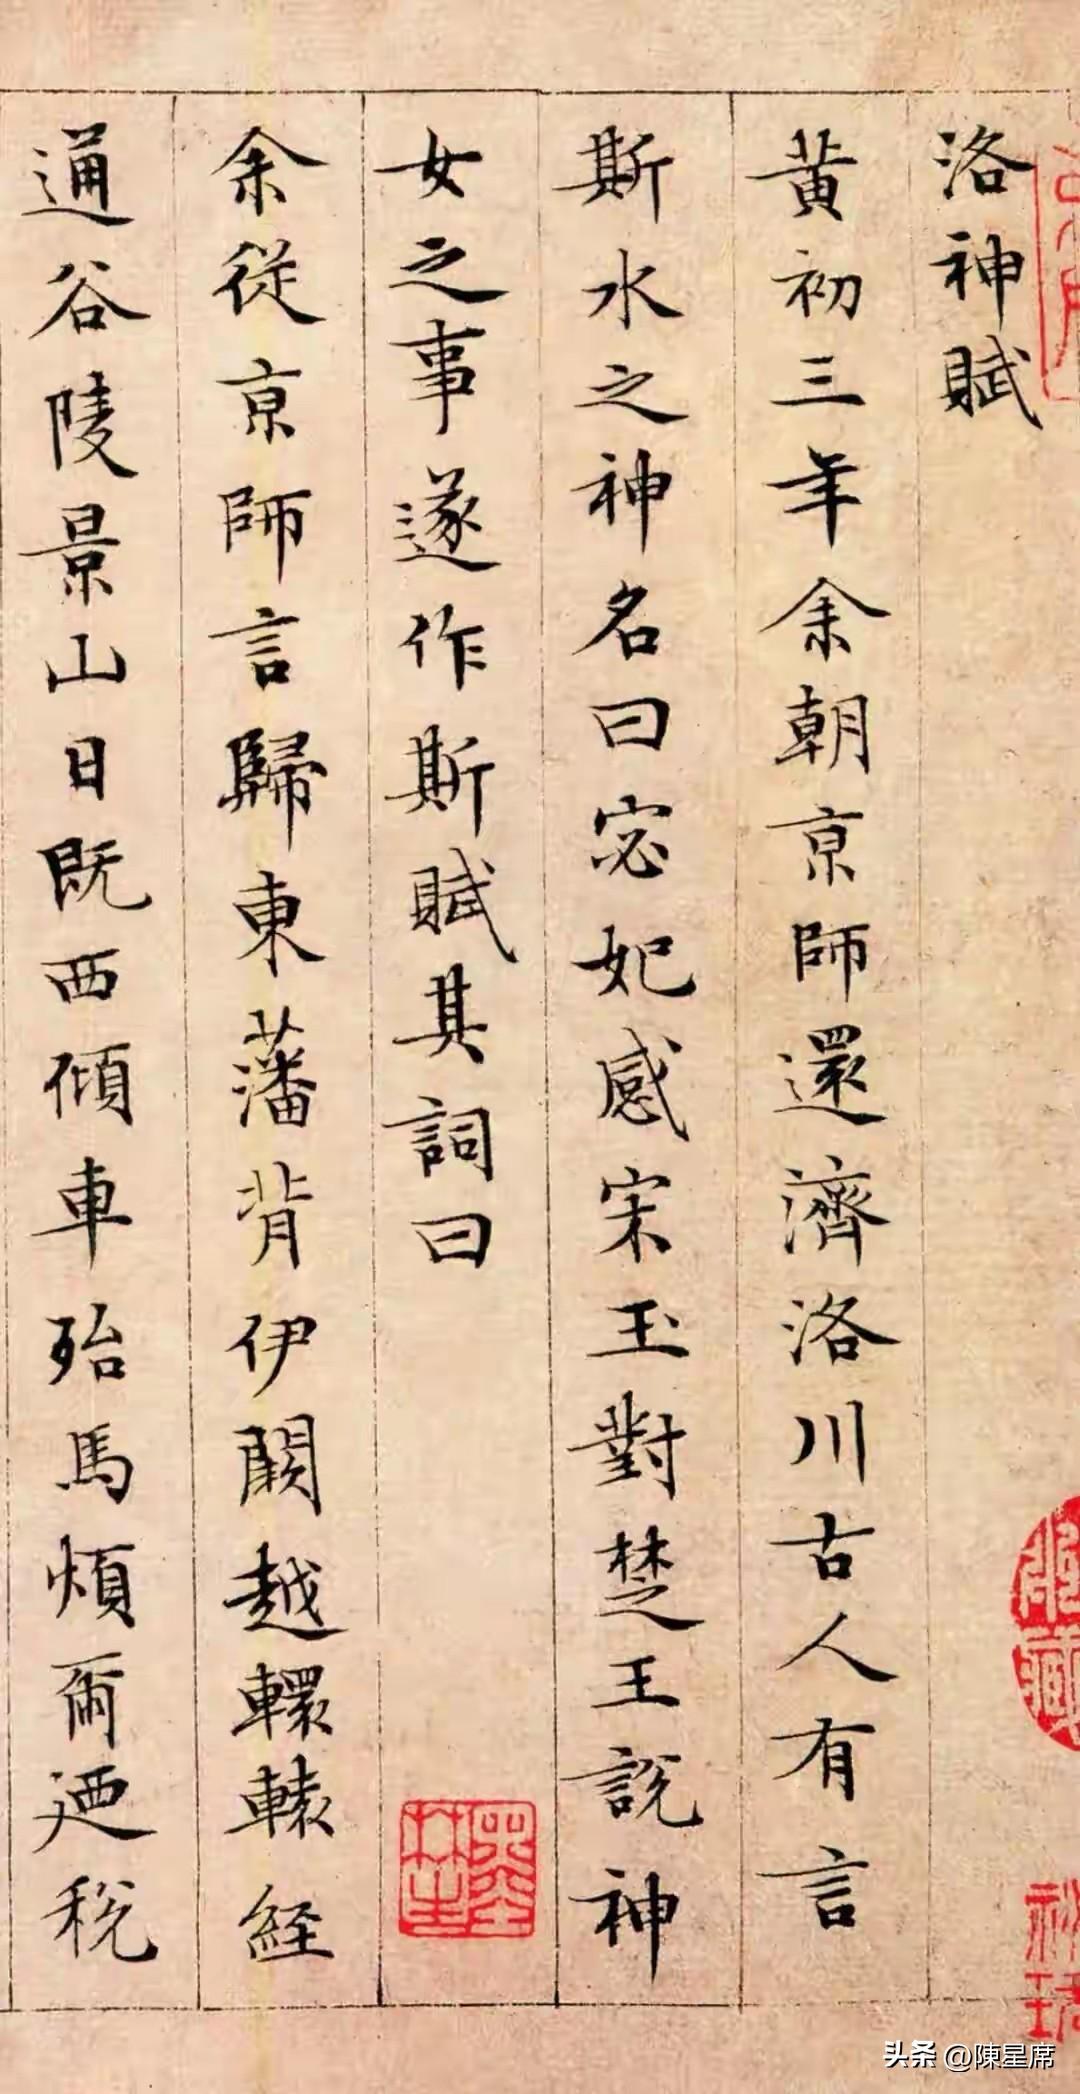 洛神賦
黃初三年余朝京師還濟洛川古人有言
斯水之神名曰宓妃感宋玉對楚王說神
女之事遂作斯賦其詞曰
余從京師言歸東藩背伊闕越轘轅經
通谷陵景山日既西傾車殆馬煩爾迺稅
头条 @陳星席